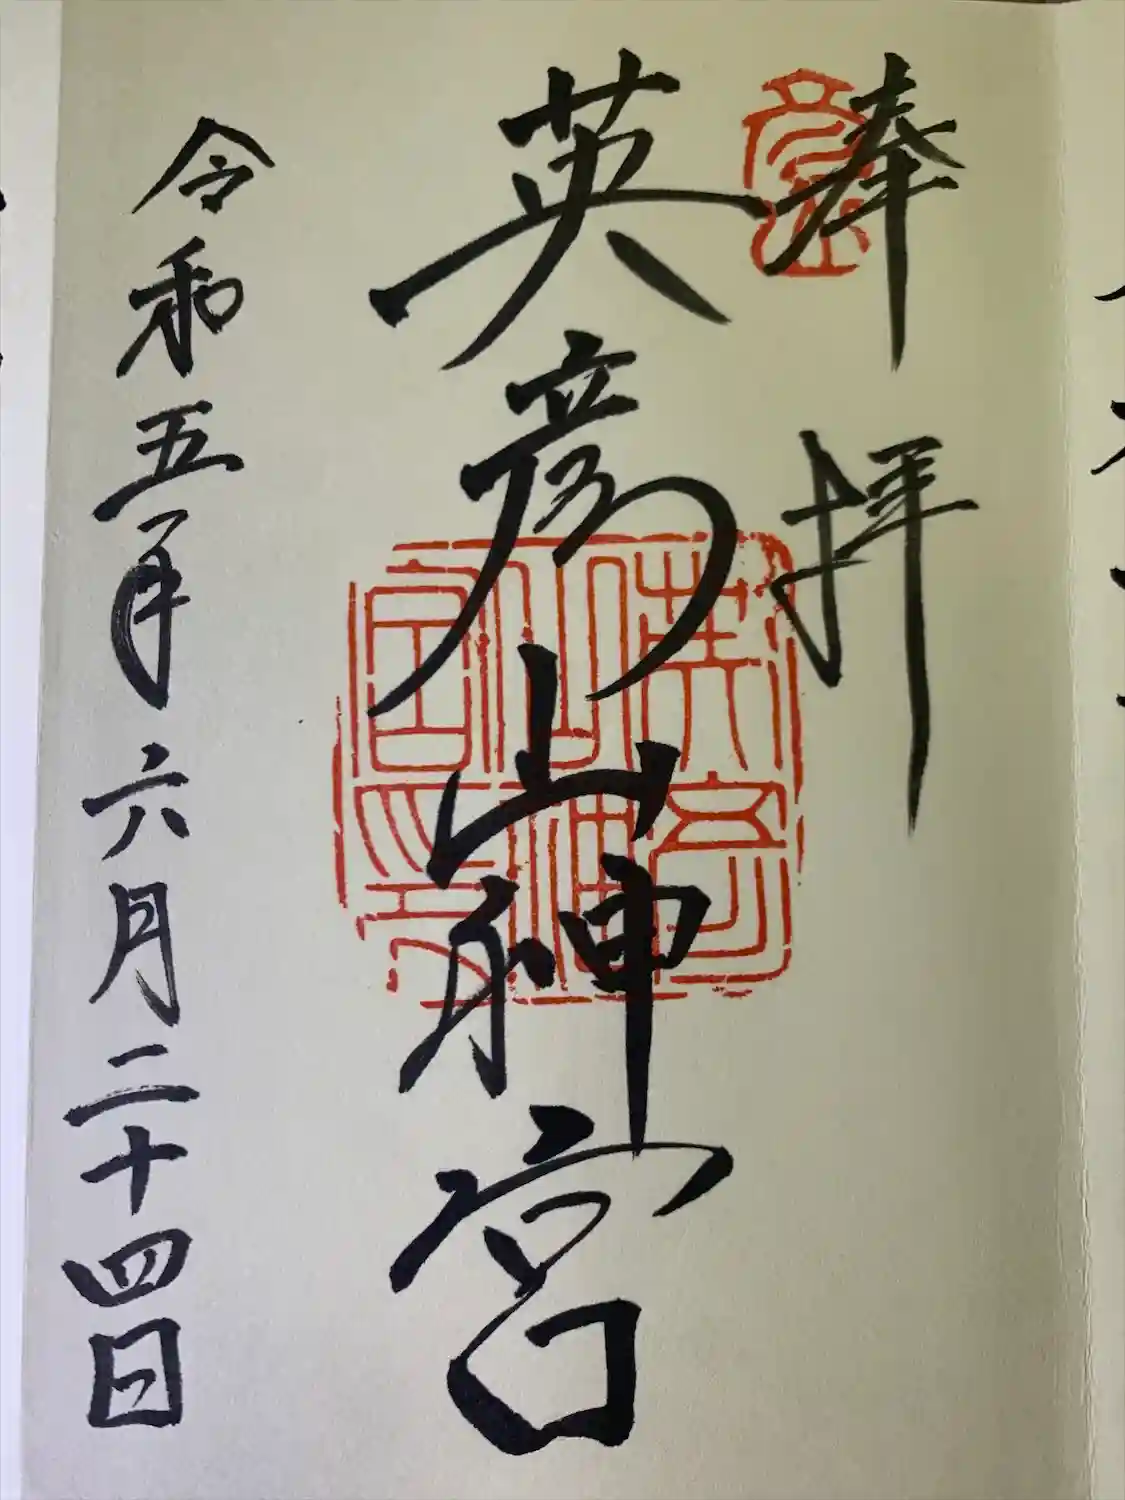 奉拝
英彦山神宮
令和五年六月二十四日
英彦山神宮印